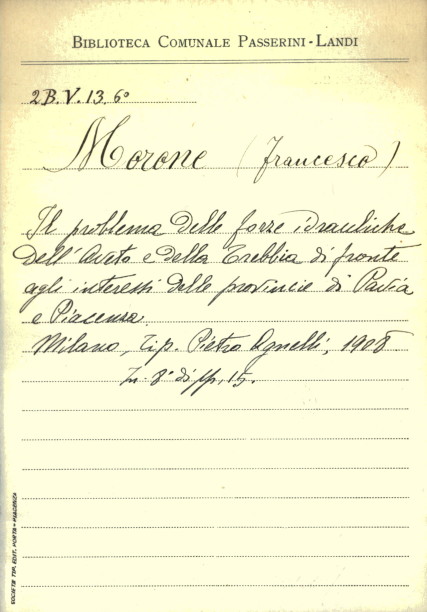 BIBLIOTECA COMUNALE PASSERINI-LANDI
2B.V.13.6º
Morone (Francesco)
Il problema delle forze idrauliche
dell'Aveto e della Trebbia di fronte
agli interessi delle provincie di Pavia
e Piacenza
Milano, Tip. Pietro Agnelli, 1908
In-8º di pp. 15.
SOCIETÀ TIP. EDIT. PORTA - PIACENZA